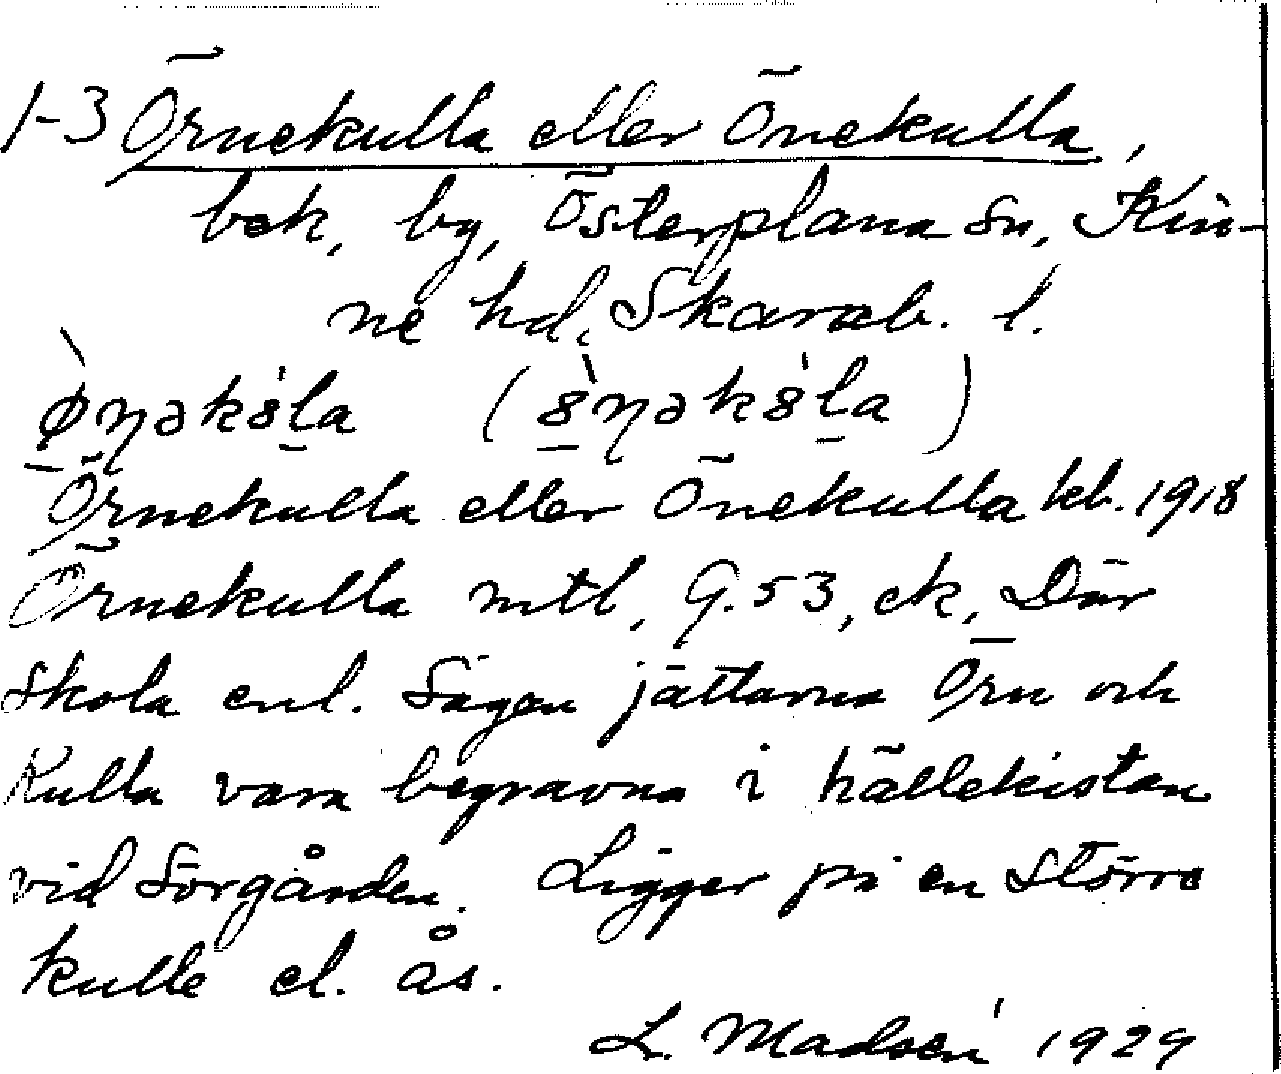 1-3 Örnekulla eller Önekulla,
bek, by, Österplana sn, Kin-
ne hd, Skarab. l.
ö̀ŋəkö̀la (ö̀ŋəkö̀la)
Örnekulla eller Önekulla kb. 1918
Örnekulla mtl, G.53, ek, Där
skola enl. sägen jättarna Örn och
Kulla vara begravna i hällekistan
vid Sörgården. Ligger på en större
kulle el. ås.
L. Madsén 1929